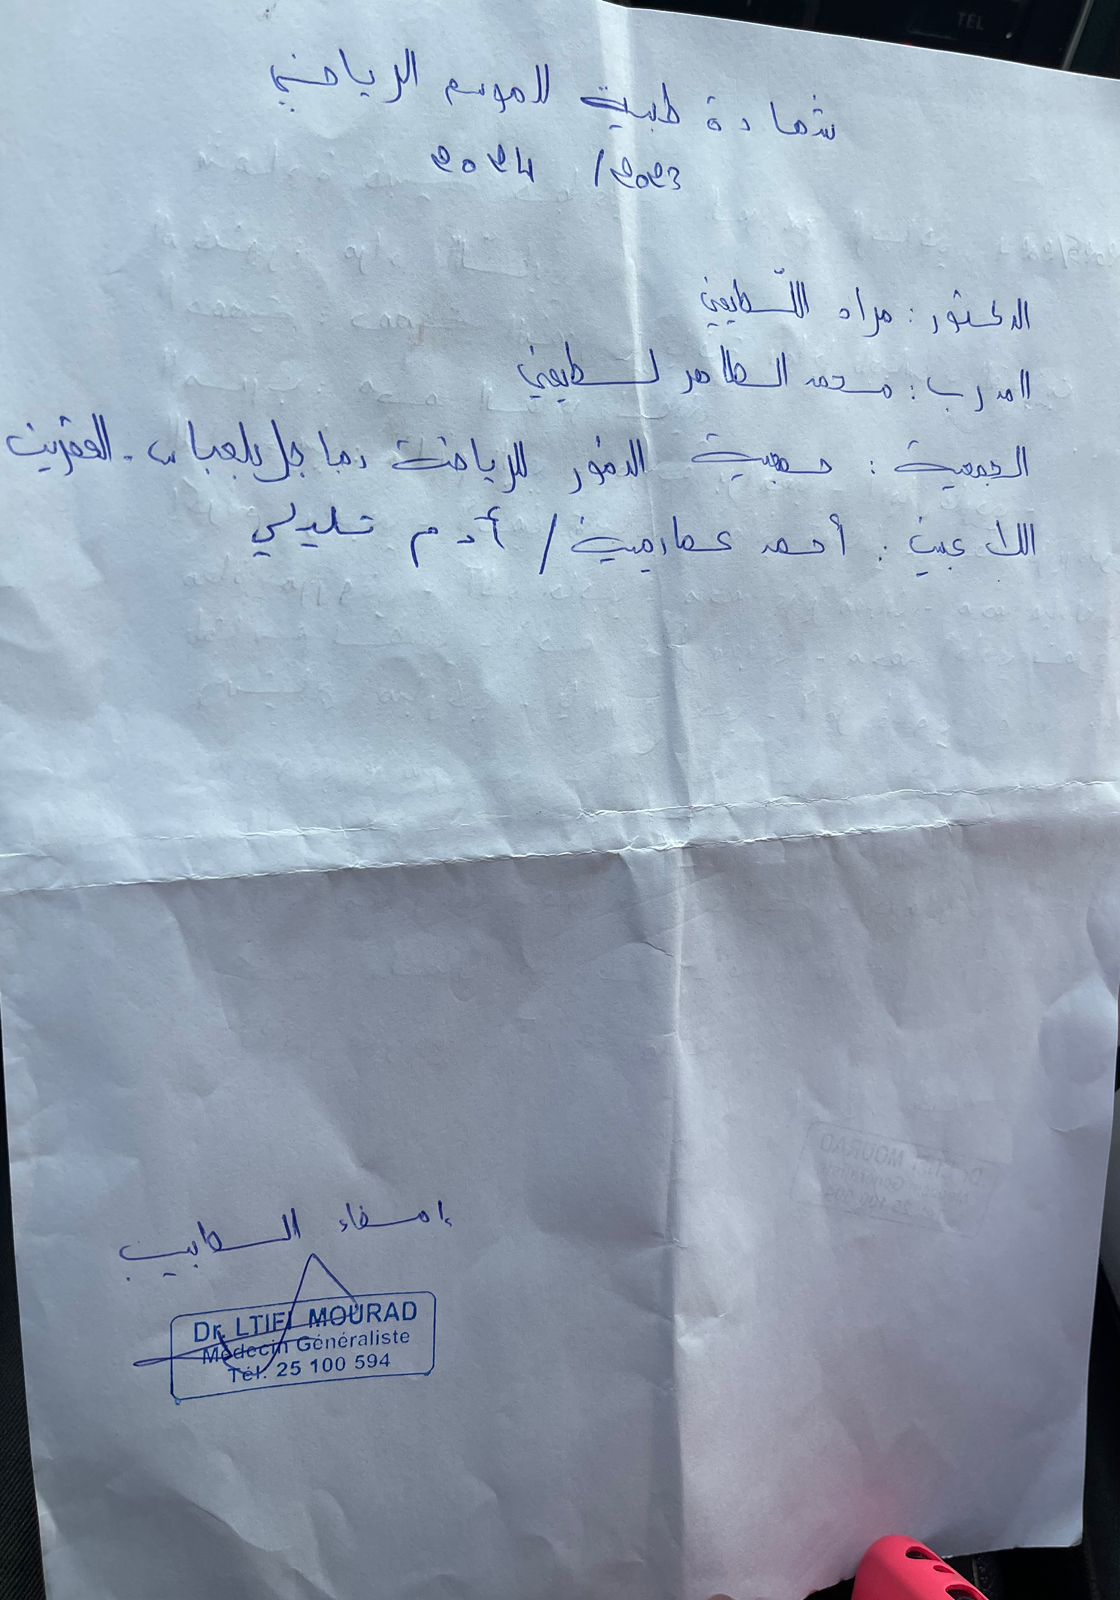 شهادة طبية للموسم الرياضي
2023/ 2024
الدكتور: مراد اللّطيفي
المدرب: محمد الطاهر لطيفي
الجمعية: جمعية النمور للرياضة بماجل بلعباس - القصرين
اللاعبين: أحمد عمارمية / أدم تليلي
إمضاء الطبيب
Dr. LTIFI MOURAD
Médecin Généraliste
Tél: 25 100 594